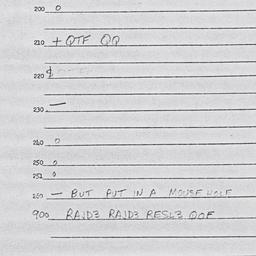 200 0
210 + QTF QQ
220 $
230 —
240 0
250 0
251 0
260 — BUT PUT IN A MOUSE HOLE
900 RAJD3 RAJD3 RESL3 OOF